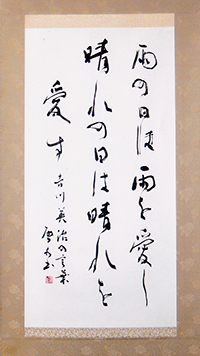 雨の日は雨を愛し
晴れの日は晴れを
愛す
吉川英治の言葉